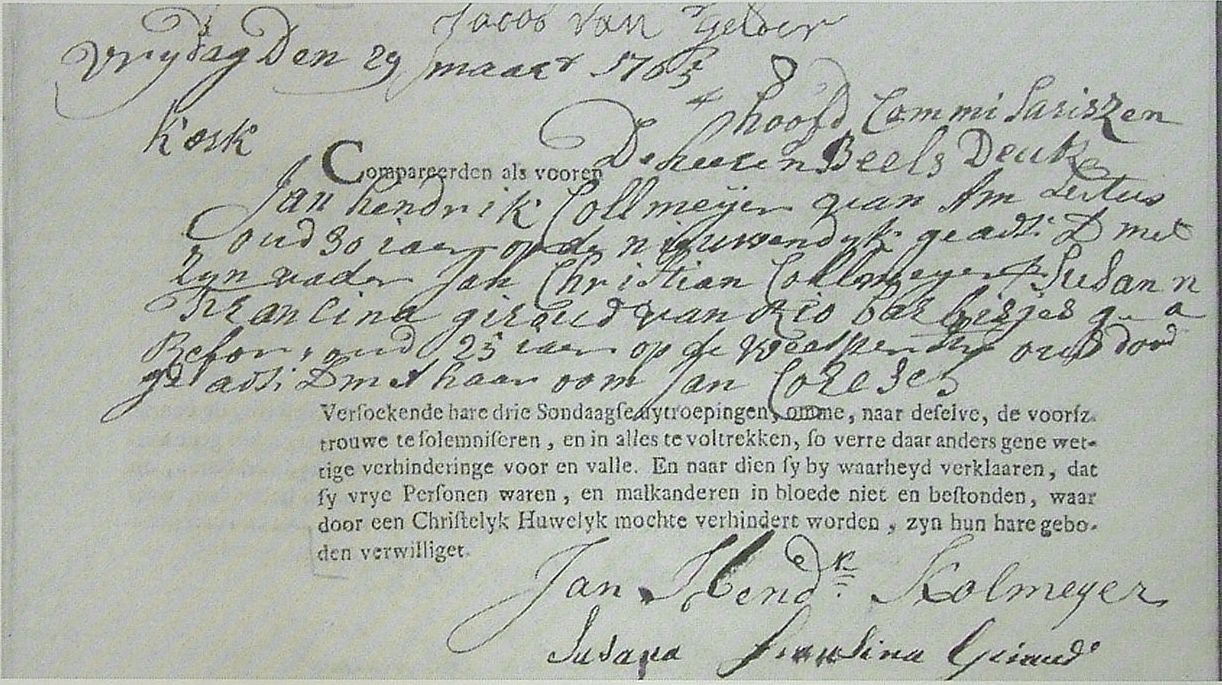 Jacob van Gelder
Vrijdag Den 29 maart 1765
hoofd Commisariszen
kerk
De heeren Beels Deutz
Compareerden als vooren
Jan hendrik Collmeijer van Am Luters
oud 30 iaer op de nieuwendijk geadsi D met
zyn vader Jan Christian Collmeyer & Susann
Francina giraud van
Refor, oud 25 iaer op de Weesper oud dood
geadsi D met haar oom Jan
Versoekende hare drie Sondaagse uytroepingen, omme, naar deselve, de voorsz.
trouwe te solemniseren, en in alles te voltrekken, so verre daar anders gene wet-
tige verhinderinge voor en valle. En naar dien sy by waarheyd verklaaren, dat
sy vrye Personen waren, en malkanderen in bloede niet en bestonden, waar
door een Christelyk Huwelyk mochte verhindert worden, zyn hun hare gebo-
den verwilliget.
Jan Hendk Kolmeyer
Susana Fransina Giraud